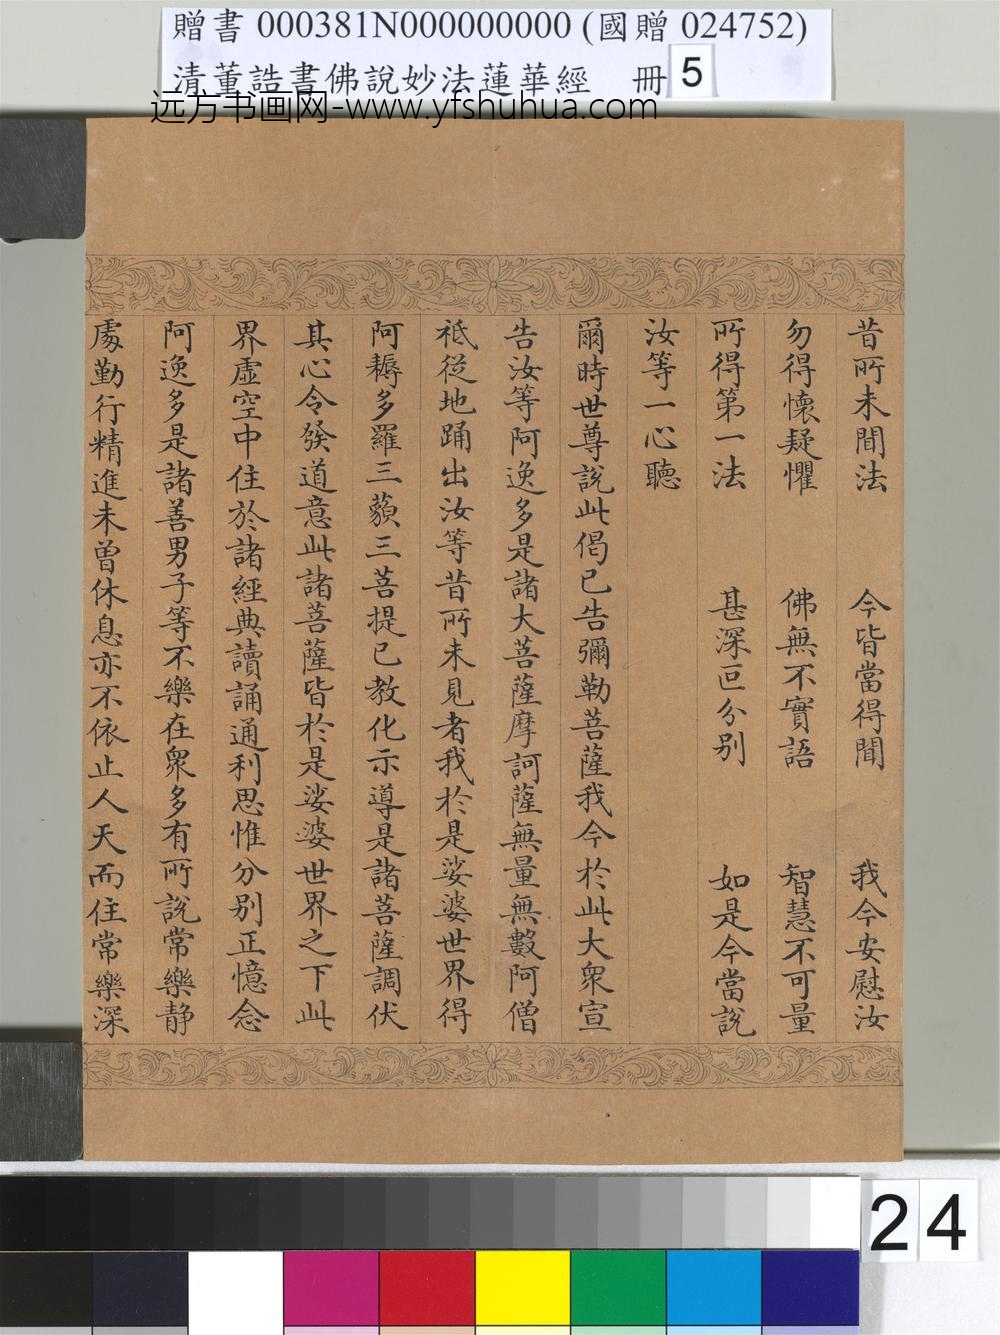 贈書 000381N000000000 (國贈 024752)
清董誥書佛說妙法蓮華經 冊 5
远方书画网-www.yfshuhua.com
昔所未聞法 今皆當得聞 我今安慰汝
勿得懷疑懼 佛無不實語 智慧不可量
所得第一法 甚深叵分別 如是今當說
汝等一心聽
爾時世尊說此偈已告彌勒菩薩我今於此大衆宣
告汝等阿逸多是諸大菩薩摩訶薩無量無數阿僧
祇從地踊出汝等昔所未見者我於是娑婆世界得
阿耨多羅三藐三菩提已教化示導是諸菩薩調伏
其心令發道意此諸菩薩皆於是娑婆世界之下此
界虛空中住於諸經典讀誦通利思惟分別正憶念
阿逸多是諸善男子等不樂在衆多有所說常樂静
處勤行精進未曾休息亦不依止人天而住常樂深
24